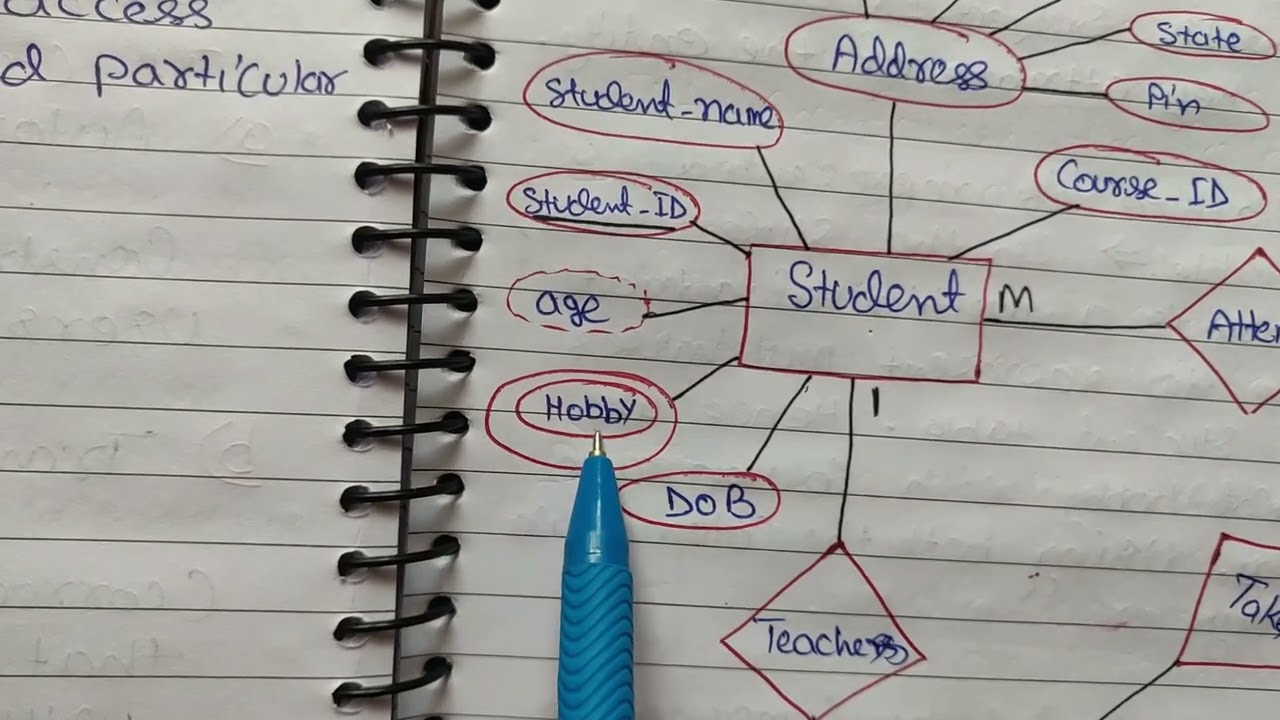 access
d particular
State
Address
Pin
Student-name
Course-ID
Student-ID
Student
M
age
Hobby
1
DOB
Teaches